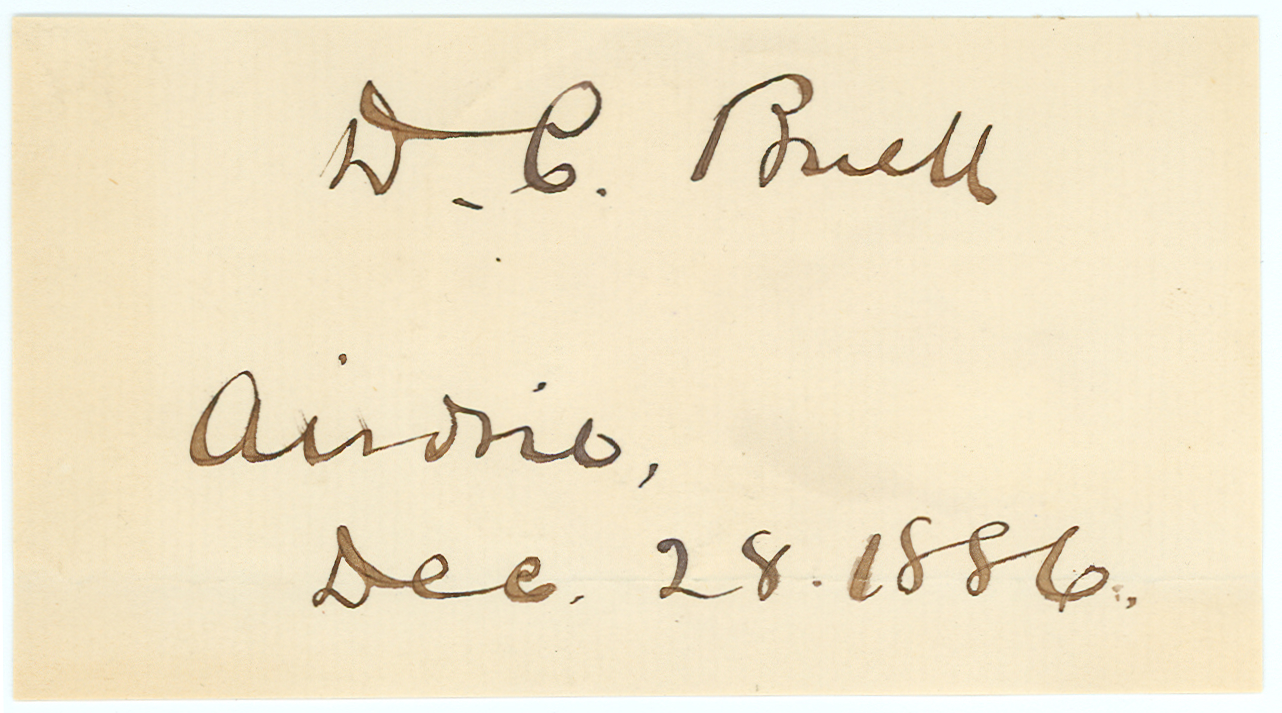 D. C. Buell
Airdrie,
Dec. 28. 1886.